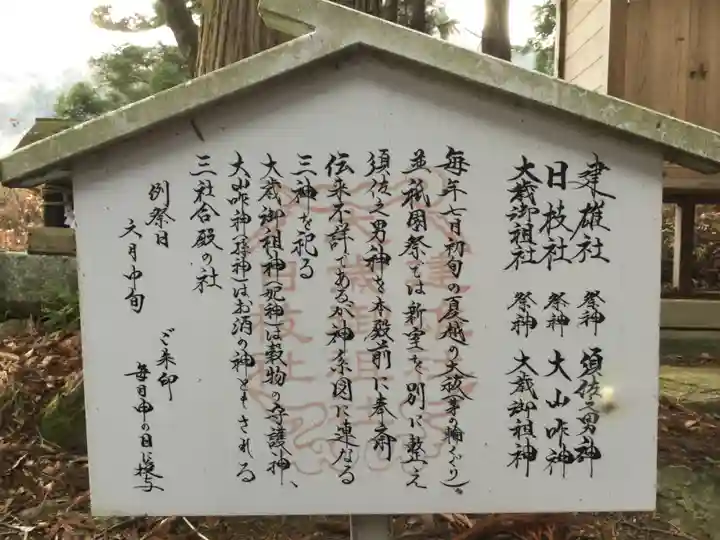 建雄社 祭神 須佐之男神
日枝社 祭神 大山咋神
大歳御祖社 祭神 大歳御祖神
毎年七月初旬の夏越の大祓(茅の輪くぐり)。
並祇園祭では新室を別に整え
須佐之男神を本殿前に奉斎
伝来不詳であるが神系図に連なる
三神を祀る
大歳御祖神は穀物の守護神、
大山咋神はお酒の神ともされる
三社合殿の社
例祭日
六月中旬
ご朱印
毎月申の日に授与